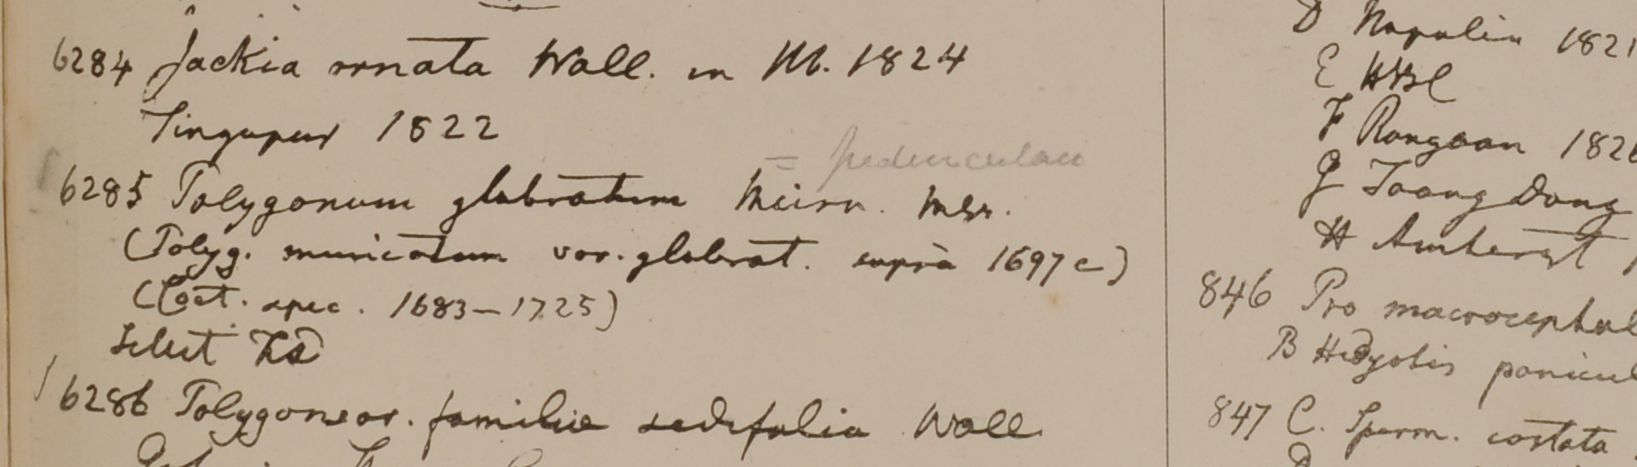 6284 Jackia ornata Wall. in M. 1824
Singapur 1822
= pedunculare
6285 Polygonum glabratum Meisn. Mss.
(Polyg. muricatum var. glabrat. suprà 1697 c)
(Cat. spec. 1683-1725)
Silhet
6286 Polygonear. familiae Wall
D Napalia 1821
E HBC
F Rangoon 182
G Taong Dong
H Amherst
846 Pro macrocephal
B Hedyotis panicul
847 C. Sperm. costata